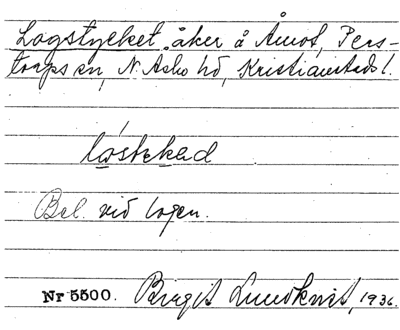 Logstycket, åker å Åmot, Pers-
torps sn, N. Åsbo hd, Kristianstads l.
Bel. vid logen.
Nr 5500. Birgit Lundkvist, 1936.